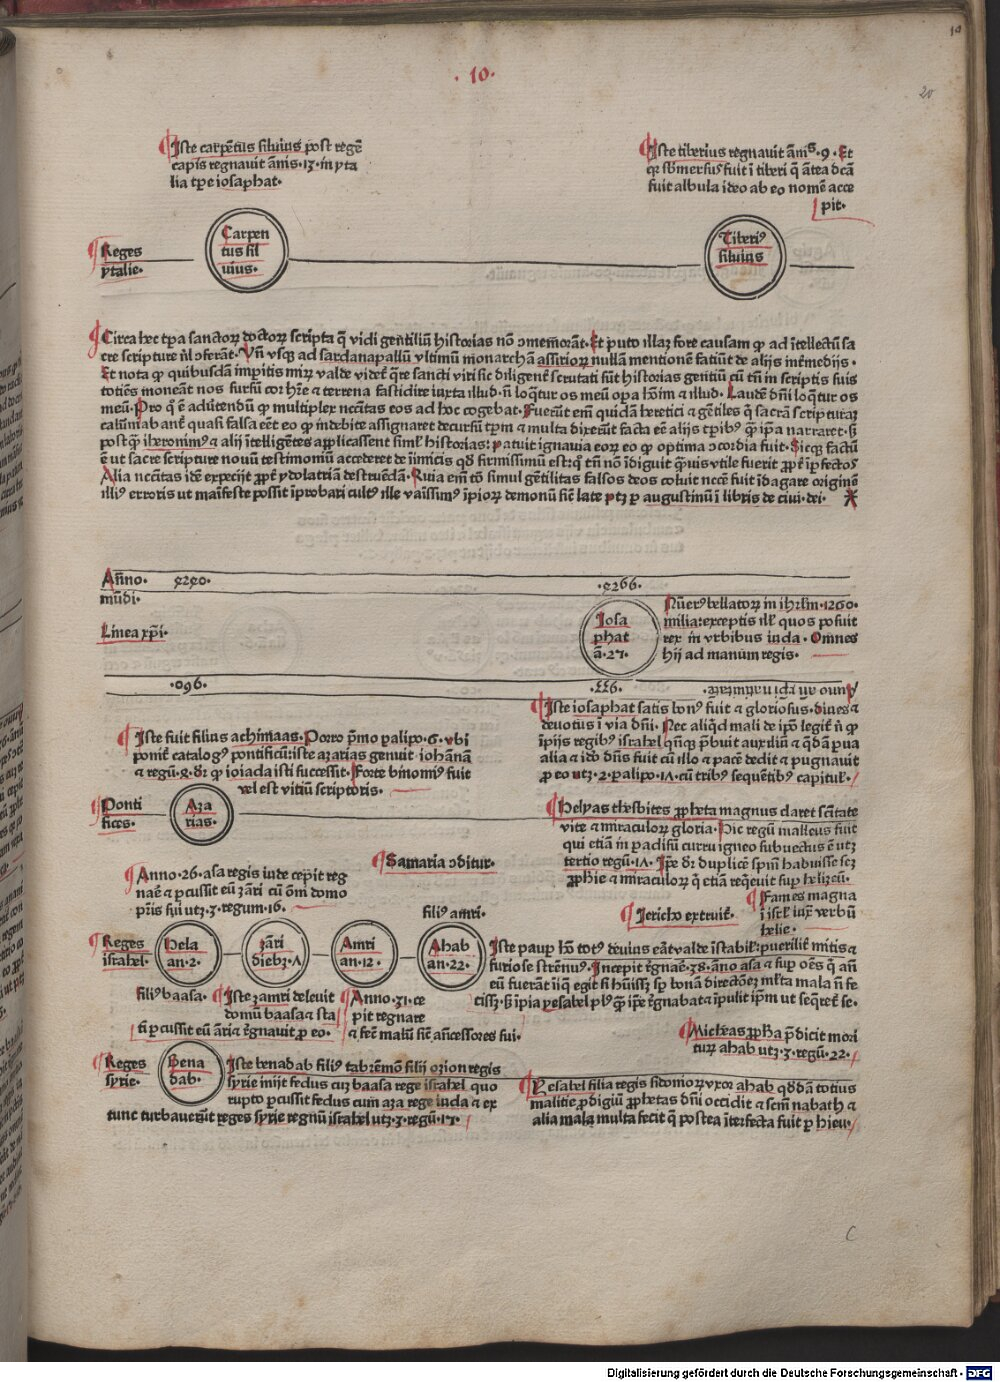 · 10 ·
10
20
Iste carpētus siluius post regē
capis regnauit ānis · 13 · in yta
lia tp̄e iosaphat ·
Iste tiberius regnauit ānis · 9 · Et
q̄ submersus fuit ī tiberi q̄ ātea dc̄a
fuit albula ideo ab eo nomē acce
pit ·
Reges
ytalie ·
Carpen
tus sil
uius ·
Tiberi9
siluius
Circa hec tp̄a sanctorꝝ doctorꝝ scripta q̄ vidi gentiliū historias nō ↄmemorāt · Et puto illaꝝ fore causam ꝙ ad ītellectū sa
cre scripture nl̄ ↄferāt · Vn̄ vsqꝫ ad sardanapallū vltimū monarchā assiriorꝝ nullā mentionē faciūt de alijs intermedijs ·
Et nota ꝙ quibusdā impitis miꝝ valde videt̄ q̄re sancti viri sic diligent̄ scrutati sūt historias gentiū cū tn̄ in scriptis suis
totiēs moneāt nos sursū cor hr̄e et terrena fastidire iuxta illud · n̄ loq̄tur os meū oꝑa hoīm et illud · Laudē dn̄i loq̄tur os
meū · Pro q̄ ē aduertendū ꝙ multiplex nc̄citas eos ad hoc cogebat · Fuerūt em̄ quidā heretici et gētiles q̄ sacrā scripturaꝝ
calūniabant̄ quasi falsa eēt eo ꝙ indebite assignaret decursū tꝑm et multa dixerūt facta eē alijs tꝑib9 q̄ īpa narraret · ß
postq̄ iheronim9 et alij ītelligētes applicassent siml̄ historias : patuit ignauia eoꝝ eo ꝙ optima ↄcordia fuit · Sicqꝫ factū
ē ut sacre scripture nouū testimoniū accederet de īimicis qd̄ firmissimū est : q̄ tn̄ nō īdiguit q̄uis vtile fuerit ꝓpt̄ īpfectos
Alia nc̄citas idē expecijt ꝓpt̄ ydolatriā destruēdā · Quia em̄ tō simul gētilitas falsos deos coluit nc̄ce fuit īdagare originē
illi9 erroris ut māifeste possit īprobari cult9 ille vaīssim9 īpiorꝝ demonū sic̄ late ptꝫ ꝑ augustinū ī libris de ciui · dei ·
Anno · 4240 ·
mūdi ·
· 4266 ·
Linea xp̄i ·
Iosa
phat
ā · 27 ·
Nūer9 bellatorꝝ in ihrlm̄ · 1260 ·
milia : exceptis ill̄ quos posuit
rex in vrbibus iuda · Omnes
hij ad manum regis ·
· 096 ·
· 933 ·
Anno an̄ xp̄i natiuitatē ·
Iste iosaphat satis bon9 fuit et gloriosus · diues et
deuotus ī via dn̄i · Nec aliq̄d mali de ip̄o legit̄ n̄ ꝙ
īpijs regib9 israhel q̄nqꝫ p̄buit auxiliū et q̄dā prua
alia et ido dn̄s fuit cū illo et pacē dedit et pugnauit
ꝓ eo utꝫ · 2 · palipo · 17 · cū trib9 sequētib9 capitul̄ ·
Iste fuit filius achimaas · Porro p̄mo palipo · 6 · vbi
ponit̄ catalog9 pontificū : iste azarias genuit iohānā
et regū · 4 · dr̄ ꝙ ioiada isti successit · Forte binomi9 fuit
vel est vitiū scriptoris ·
Ponti
fices ·
Aza
rias ·
Helyas thesbites ꝓpheta magnus claret sc̄itate
vite et miraculorꝝ gloria · Hic regū malleus fuit
qui etiā in padisū curru igneo subuectus ē utꝫ
tertio regū · 17 · Ipē dr̄ duplicē spm̄ habuisse scꝫ
ꝓphie et miraculorꝝ q̄ etiā reqeuit sup helizeū ·
Samaria ↄditur ·
Anno · 26 · asa regis iude cepit reg
nare et pcussit eū zāri cū oīm domo
pr̄is sui utꝫ · 3 · regum · 16 ·
fili9 amri ·
Jericho extruit̄ ·
Fames magna
ī isrl̄ iux̄ verbū
helie ·
Reges
israhel ·
Hela
an · 2 ·
zāri
diebꝫ · 7
Amri
an · 12 ·
Ahab
an · 22 ·
Iste paup hō tot9 deuius eāt valde īstabil̄ : puerilit̄ mitis et
furiose strēnu9 · Incepit r̄gnare · 38 · āno asa et sup oēs q̄ an̄
eū fuerāt īiqꝫ egit si hūissꝫ sp̄ bonā directōeꝫ ml̄ta mala n̄ fe
cissꝫ · ß īpia yesabel pl9 q̄ ipē r̄gnabat et īpulit ip̄m ut seq̄ret̄ se ·
fili9 baasa ·
Iste zamri deleuit
domū baasa et sta
ti pcussit eū āri et r̄gnauit ꝓ eo ·
Anno · 31 · ce
pit regnare
et fec̄ malū sic̄ an̄cessores sui ·
Micheas ꝓpha p̄dicit mori
turꝝ ahab utꝫ · 3 · regū · 22 ·
Reges
syrie ·
Bena
dab ·
Iste benadab fili9 tabrēmon filij ozion regis
syrie inijt fedus cuꝫ baasa rege israhel quo
rupto pcussit fedus cum aza rege iuda et ex
tunc turbauerūt reges syrie regnū israhel utꝫ · 3 · regū · 17 ·
Yesabel filia regis sidoniorꝝ vxor ahab q̄ddā totius
malitie ꝓdigiū ꝓphetas dn̄i occidit et scm̄ nabath et
alia mala multa fecit q̄ postea īterfecta fuit ꝑ hieu ·
C
Digitalisierung gefördert durch die Deutsche Forschungsgemeinschaft - DFG